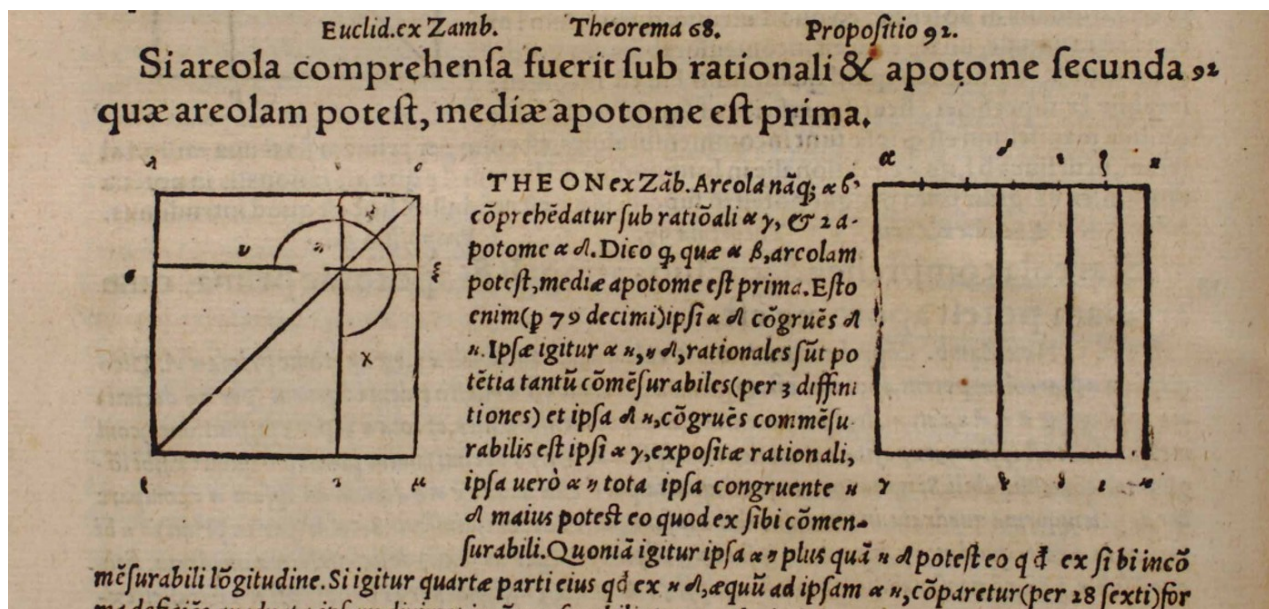 Euclid.ex Zamb. Theorema 68. Propoſitio 92.
Si areola comprehenſa fuerit ſub rationali & apotome ſecunda 92
quæ areolam poteſt, mediæ apotome eſt prima.
THEON ex Zãb. Areola nãq; α β
cõprehẽdatur ſub ratiõali α γ, & 2 a-
potome α δ. Dico q, quæ α β, areolam
poteſt, mediæ apotome eſt prima. Eſto
enim (p 79 decimi) ipſi α δ cõgruẽs δ
η. Ipſæ igitur α η, η δ, rationales ſũt po
tẽtia tantũ cõmẽſurabiles (per 3 diffini
tiones) et ipſa δ η, cõgruẽs commẽſu
rabilis eſt ipſi α γ, expoſitæ rationali,
ipſa uerò α η tota ipſa congruente η
δ maius poteſt eo quod ex ſibi cõmen-
ſurabili. Quoniã igitur ipſa α η plus quã η δ poteſt eo qd ex ſi bi incõ
mẽſurabili lõgitudine. Si igitur quartæ parti eius qd ex η δ, æquũ ad ipſam α η, cõparetur (per 28 ſexti) for